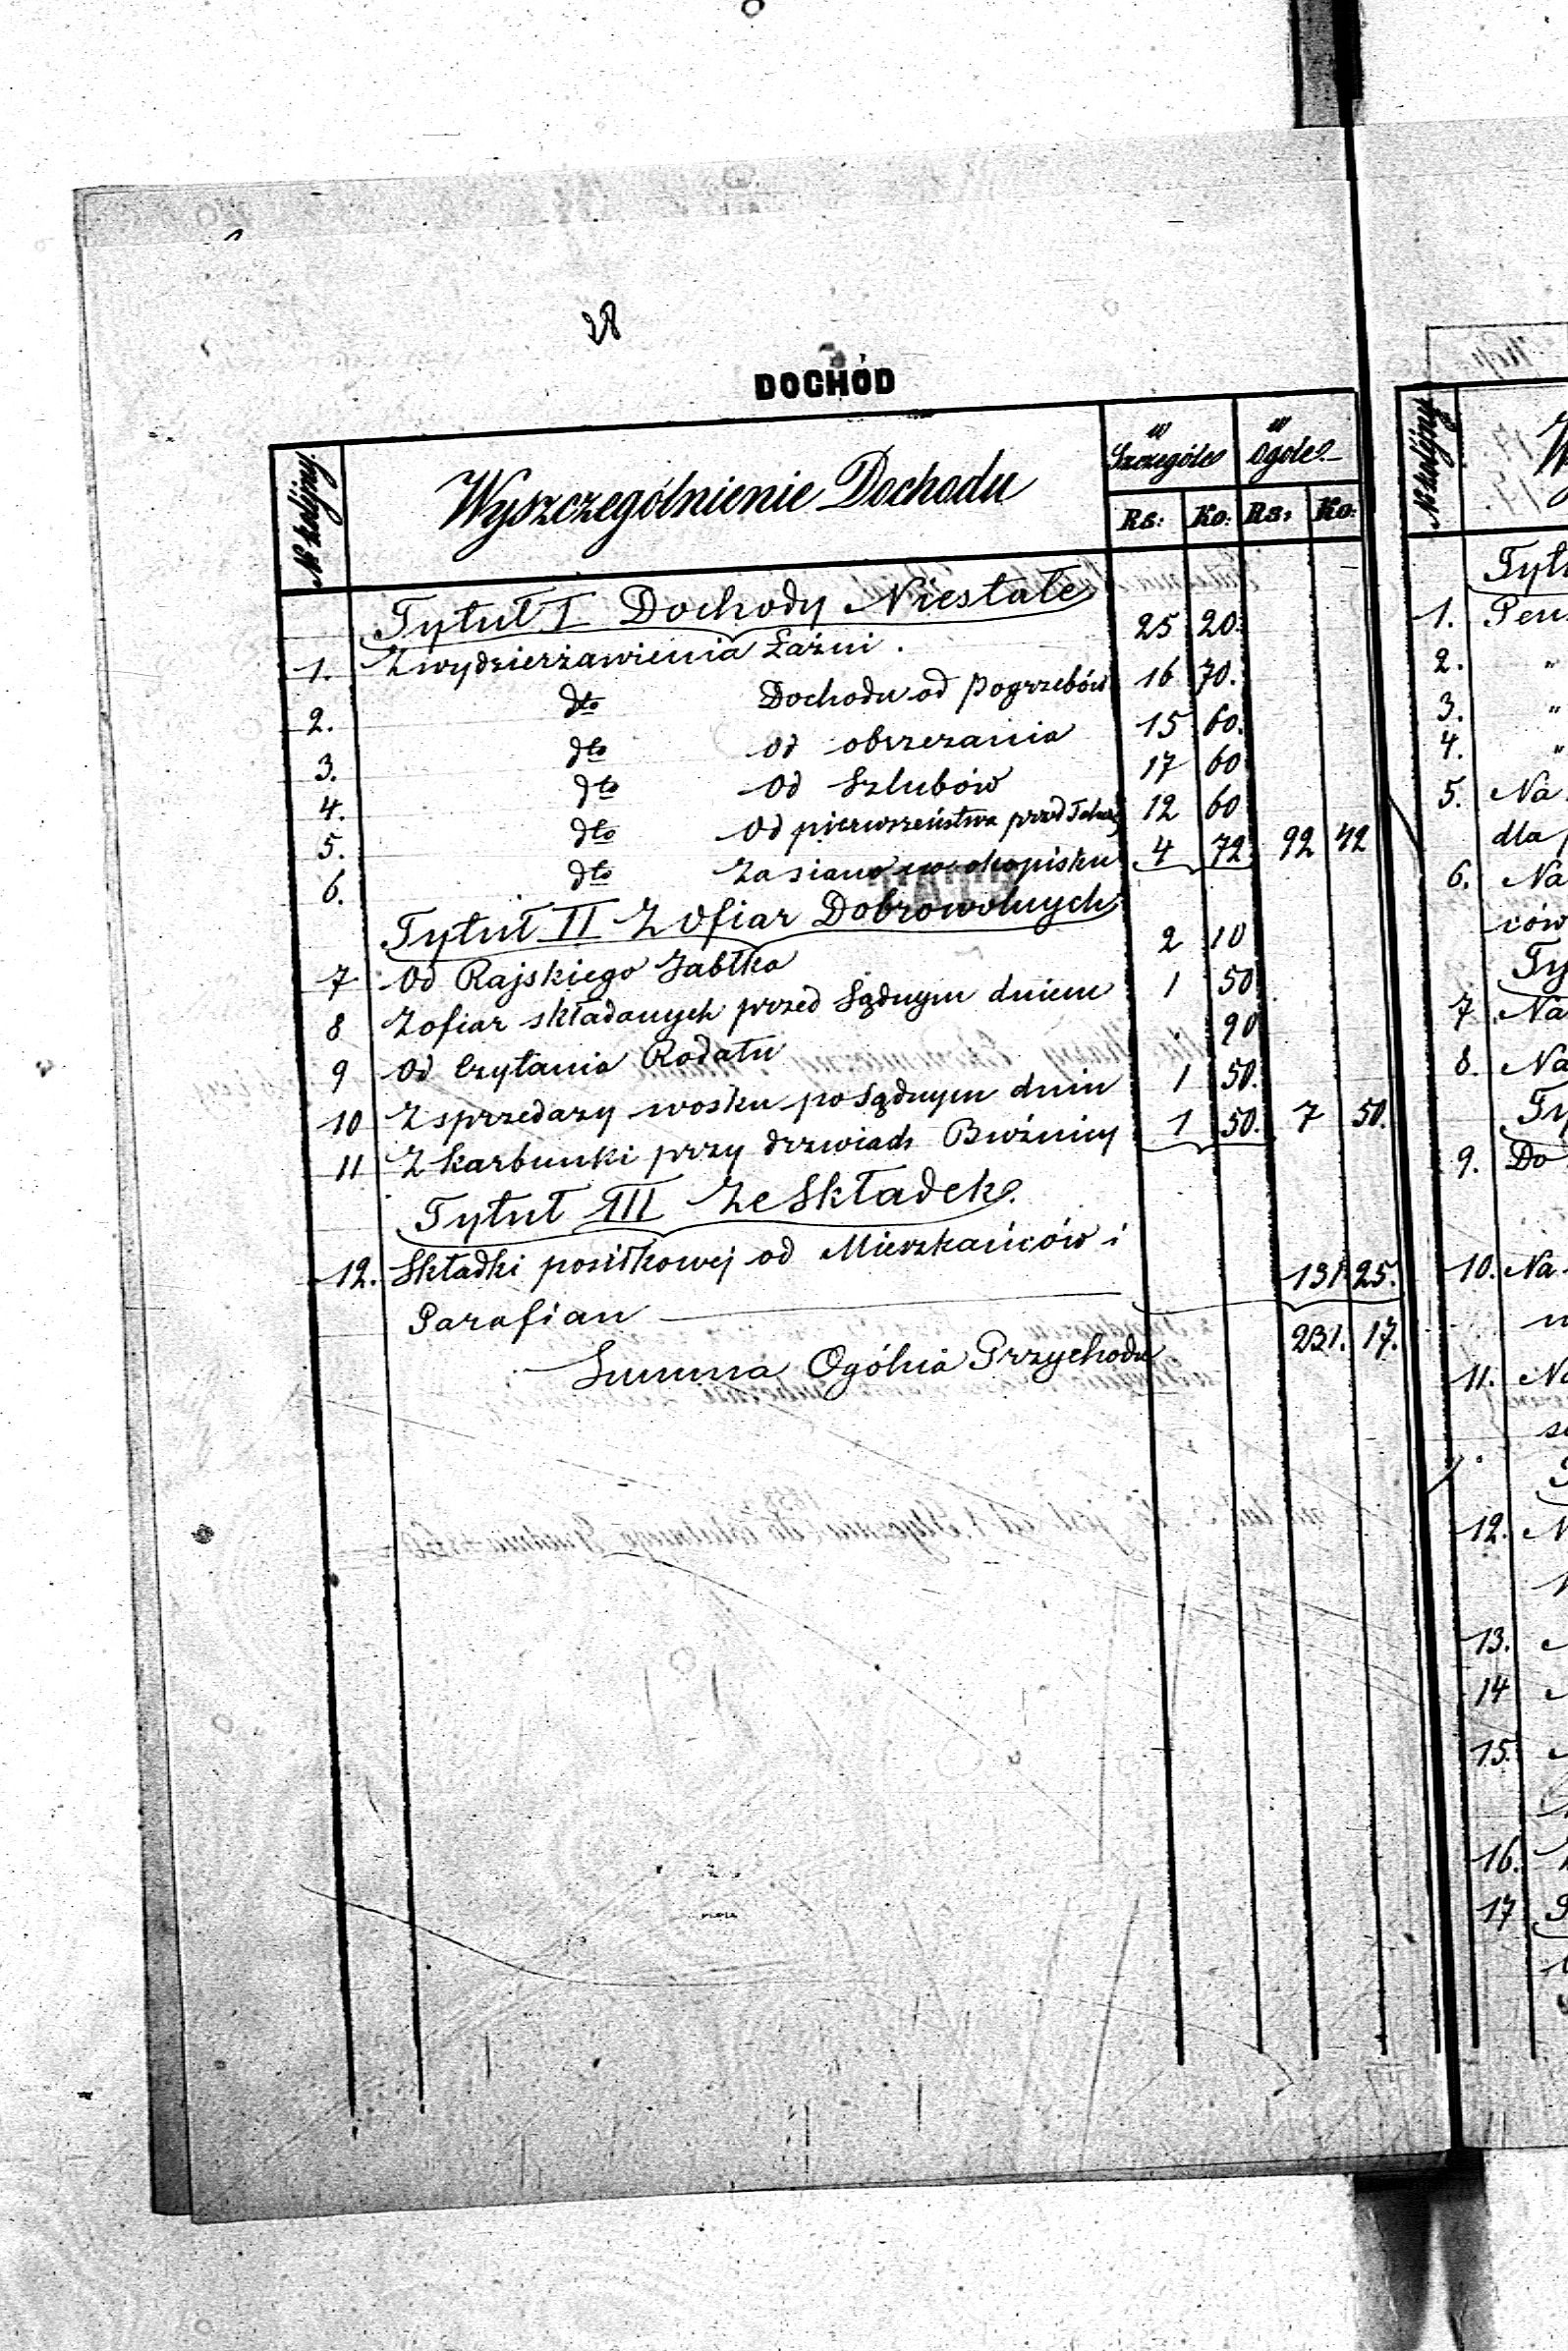 28
DOCHÓD
№ kolejny. Wyszczególnienie Dochodu w Szczególe w Ogóle
Rs: Ko: Rs: Ko:
Tytuł I Dochody Niestałe
1. Z wydzierżawienia Łaźni. 25 20.
2. dto Dochodu od Pogrzebów 16 70.
3. dto od obrzezania 15 60.
4. dto od Szlubów 17 60
5. dto od pierwszeństwa przed 12 60
6. dto za siano w okopisku 4 72 92 42
Tytuł II Z Ofiar Dobrowolnych
7 Od Rajskiego Jabłka 2 10
8 Z ofiar składanych przed Sądnym dniem 1 50
9 Od Czytania Rodału 90
10 Z sprzedazy wosku po Sądnym dniu 1 50.
11 Z Karbunki przy drzwiach Bużnicy 1 50. 7 50.
Tytuł III Ze Składek.
12. Składki posiłkowej od Mieszkańców i
Parafian 131 25.
Summa Ogólna Przychodu 231. 17.
№ kolejny
1.
2. "
3. "
4. "
5. Na
dla
6. Na
ców
7 Na
8. Na
9. Do
10. Na
11. Na
12.
13.
14
15.
16.
17